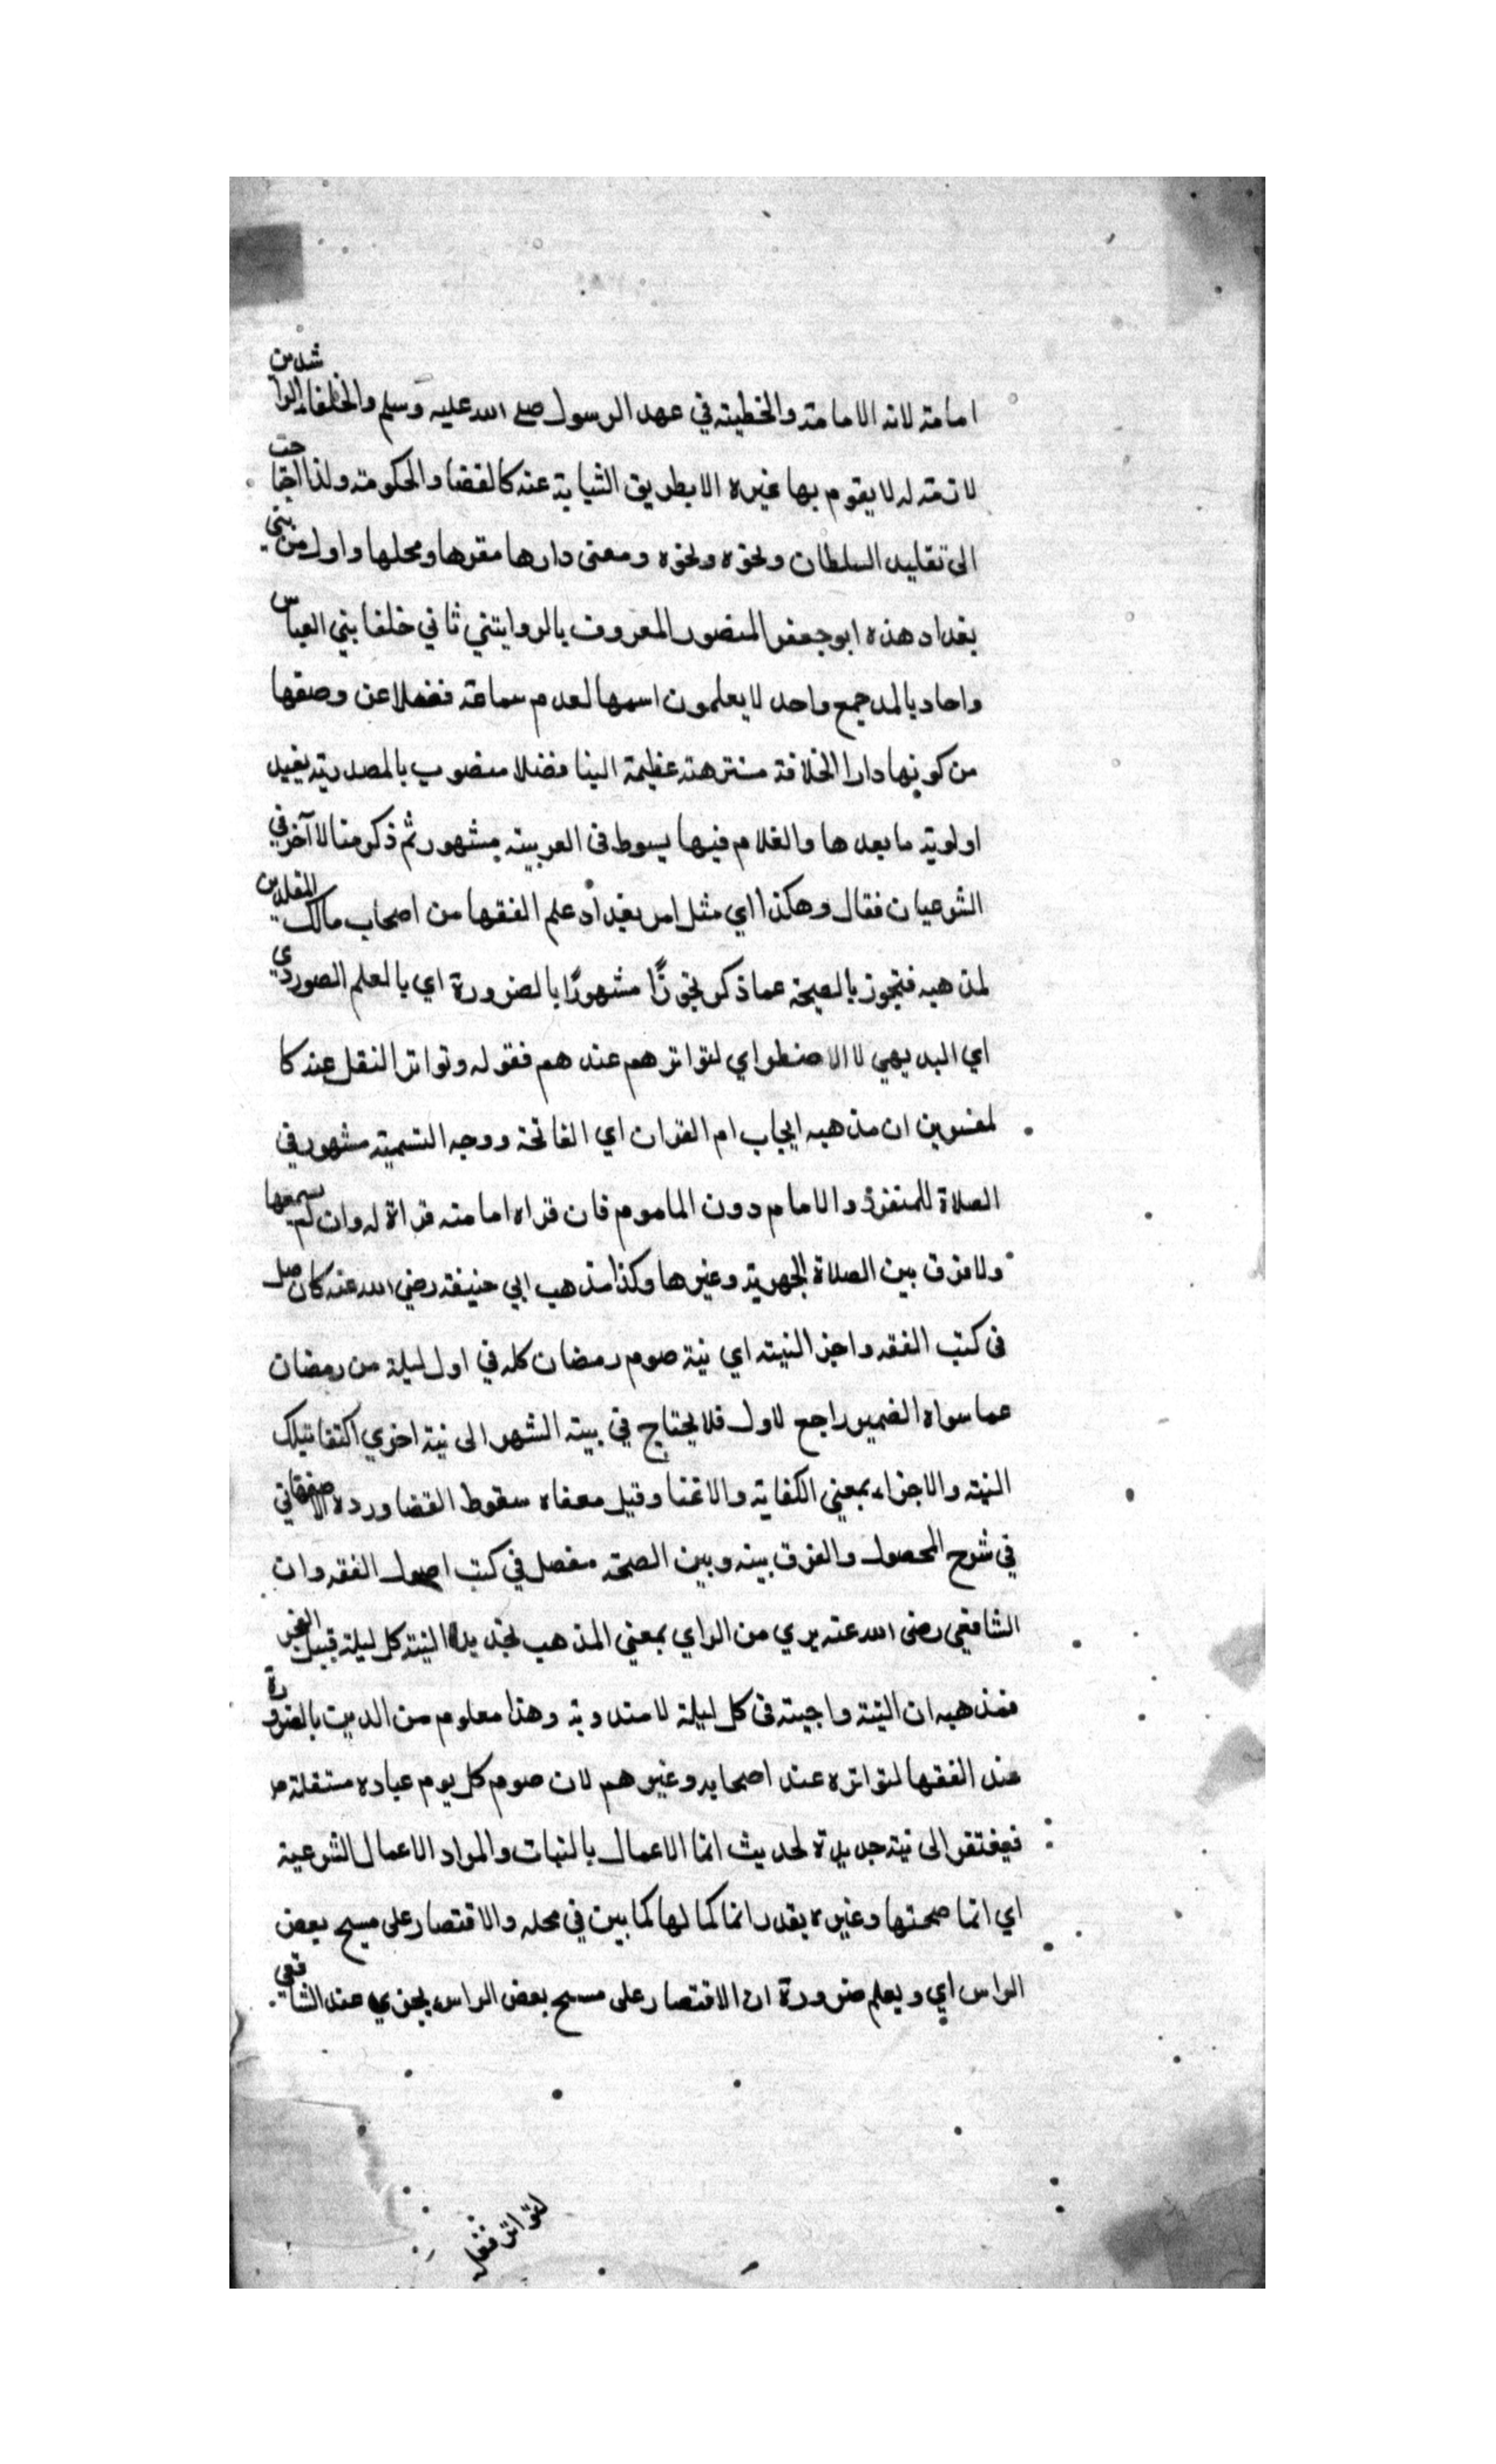 امامته لانه الامامة والخطبته في عهد الرسول صلى الله عليه وسلم والخلفاء الراشدين
لازمة له لا يقوم بها غيره الا بطريق النيابة عنه كالقضا والحكومة ولذا احتاجت
الى تقليد السلطان ونحوه ونحوه ومعنى دارها مقرها ومحلها واول من بني
بغداد هذه ابو جعفر المنصور المعروف ثاني خلفا بني العباس
واحاد لا يعلمون اسمها لعدم سماعة ففضلا عن وصفها
من كونها دارا الخلافة منتزهته عظيمة البنا فضلا منصوب بالمصدرية يفيد
اولوية ما بعدها والغلام فيها يسوط فى العربية مشهور ثم ذكر مثالا آخر في
الشرعيان فقال وهكذا اي مثل امر بغداد علم الفقها من اصحاب مالك المقلدين
لمذهبه فتجوز بالصيحة عما ذكر تجوزًا مشهورًا بالضرورة اي بالعلم الصوردي
اي البديهي لا الاضطراي لتواترهم عندهم فقوله وتواتر النقل عند كا
لمفسرين ان مذهبه ايجاب ام القران اي الفاتحة ووجه التسمية مشهور في
الصلاة للمنفرد والامام دون الماموم فان قراه امامته قراة له وان لم يسمعها
ولا فرق بين الصلاة الجهرية وغيرها وكذا مذهب ابي حنيفة رضي الله عنه كان
فى كتب الفقه واجز النيته اي نية صوم رمضان كله في اول ليلة من رمضان
عما سواه الضمير راجع لاول فلا يحتاج في بيته الشهر الى نية اخري اكتفا بتلك
النيته والاجزاء بمعني الكفاية والاغنا وقيل معناه سقوط القضا ورده الاصفهاني
في شرح المحصول والفرق بينه وبين الصحة مفصل في كتب اصول الفقه وان
الشافعي رضى الله عنه يري من الراي بمعني المذهب تجديد النيته كل ليلة قبيل الفجر
فمذهبه ان النيته واجبته فى كل ليلة لا مندوبة وهذا معلوم من الديت بالضرورة
عند الفقها لتواتره عند اصحابه وغيرهم لان صوم كل يوم عباده مستقلة
فيفتقر الى نية جديدة لحديث انما الاعمال بالنيات والمراد الاعمال الشرعية
اي انما صحتها وغيره يقدر انما كمالها كما بين في محله والاقتصار على مسح بعض
الراس اي ويعلم ضرورة ان الاقتصار على مسح بعض الراس يجزي عند الشافعي
لتواتر نقله